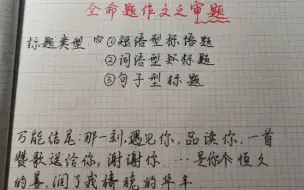 全命题作文之审题
标题类型 ①短语型标语题
②词语型标题
③句子型标题
万能结尾:那一刻,遇见你,品读你,一首
赞歌送给你,谢谢你……是你个恒久
的善,润了我旖旎的华年